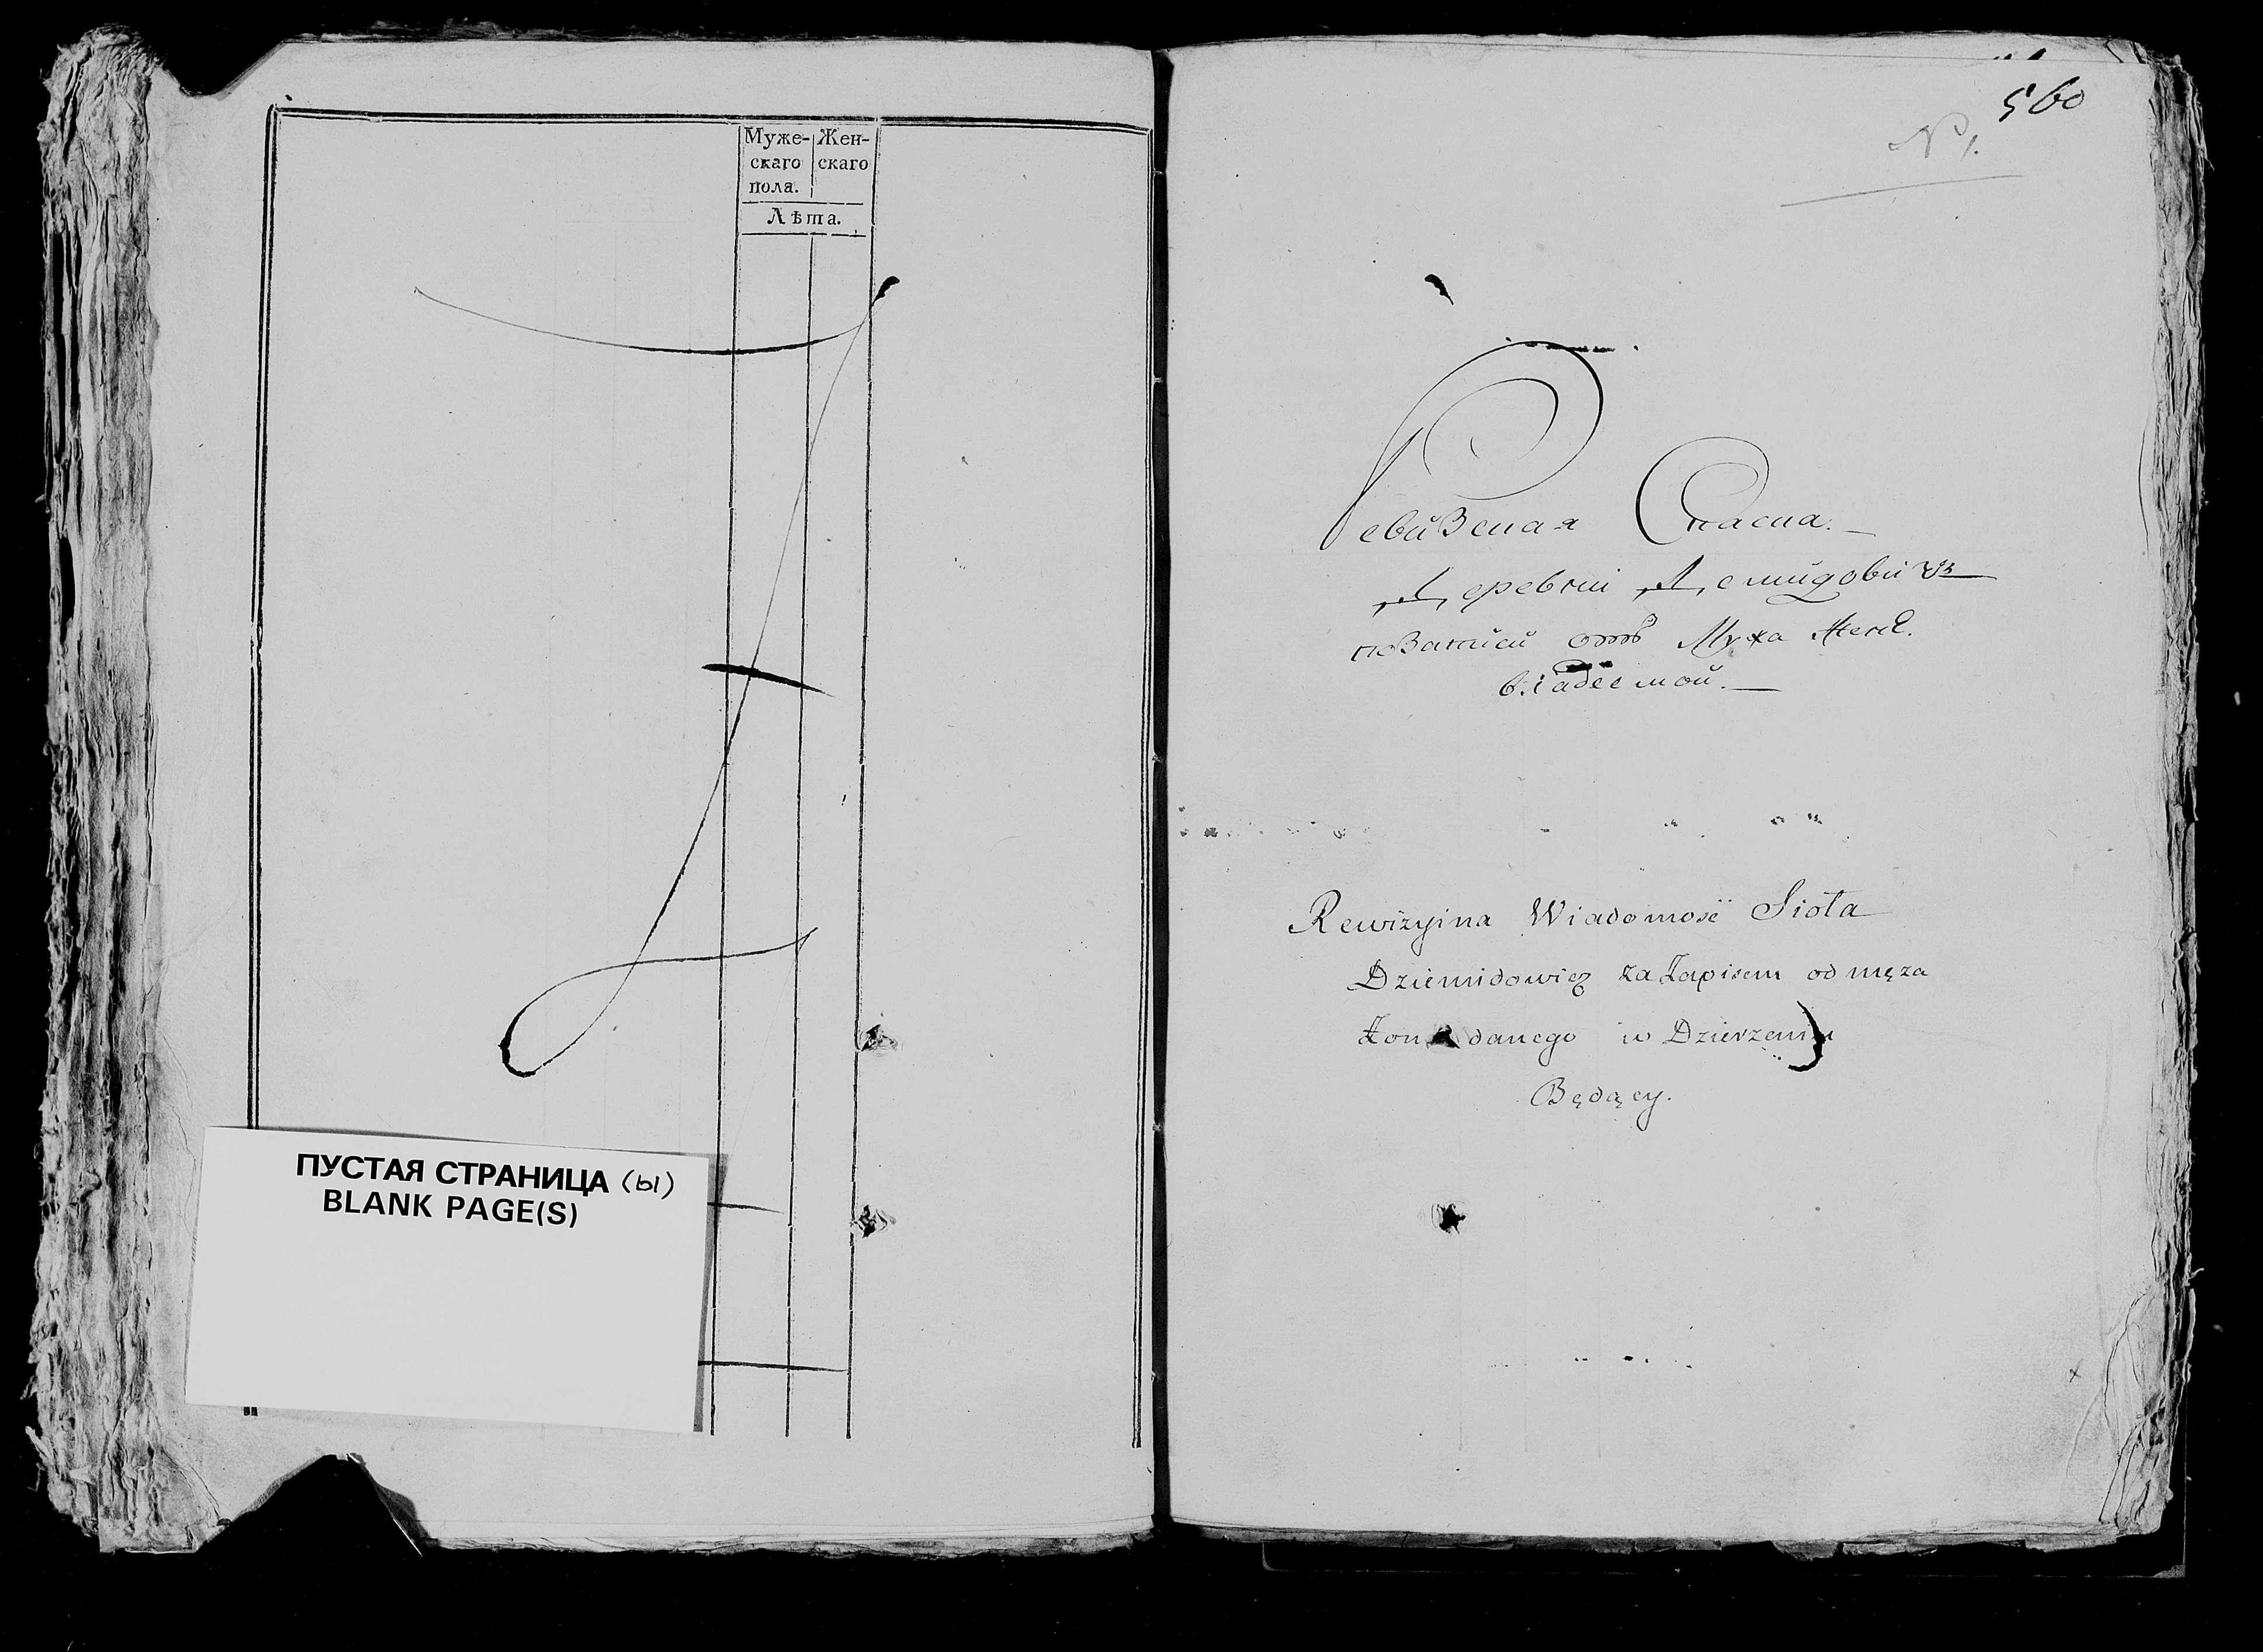 Муже- Жен-
скаго скаго
пола.
Лѣта.
ПУСТАЯ СТРАНИЦА (ы)
BLANK PAGE(S)
560
Ревизская Сказка.
Деревни Демидовичъ
позаписи отъ Мужа Жене
владеемой.
Rewizyina Wiadomość Sioła
Dziemidowicz za Zapisem od męza
Zonie danego w Dzierzeniu
Będący.